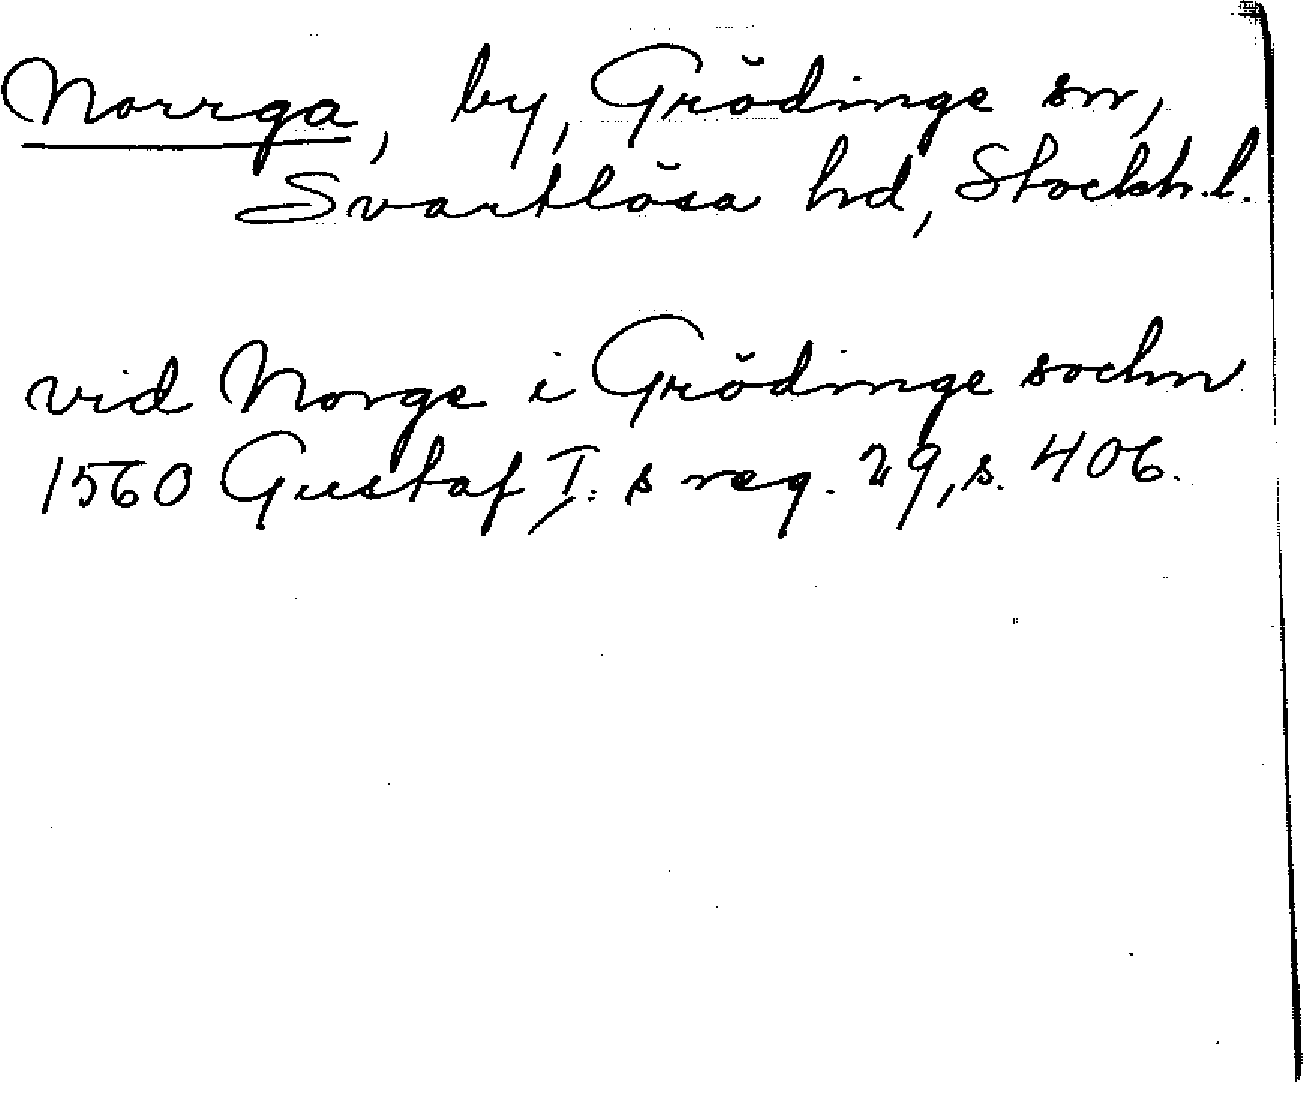 Norrga, by, Grödinge sn,
Svartlösa hd, Stockh.l.
vid Norge i Grödinge sochn
1560 Gustaf I:s reg. 29, s. 406.